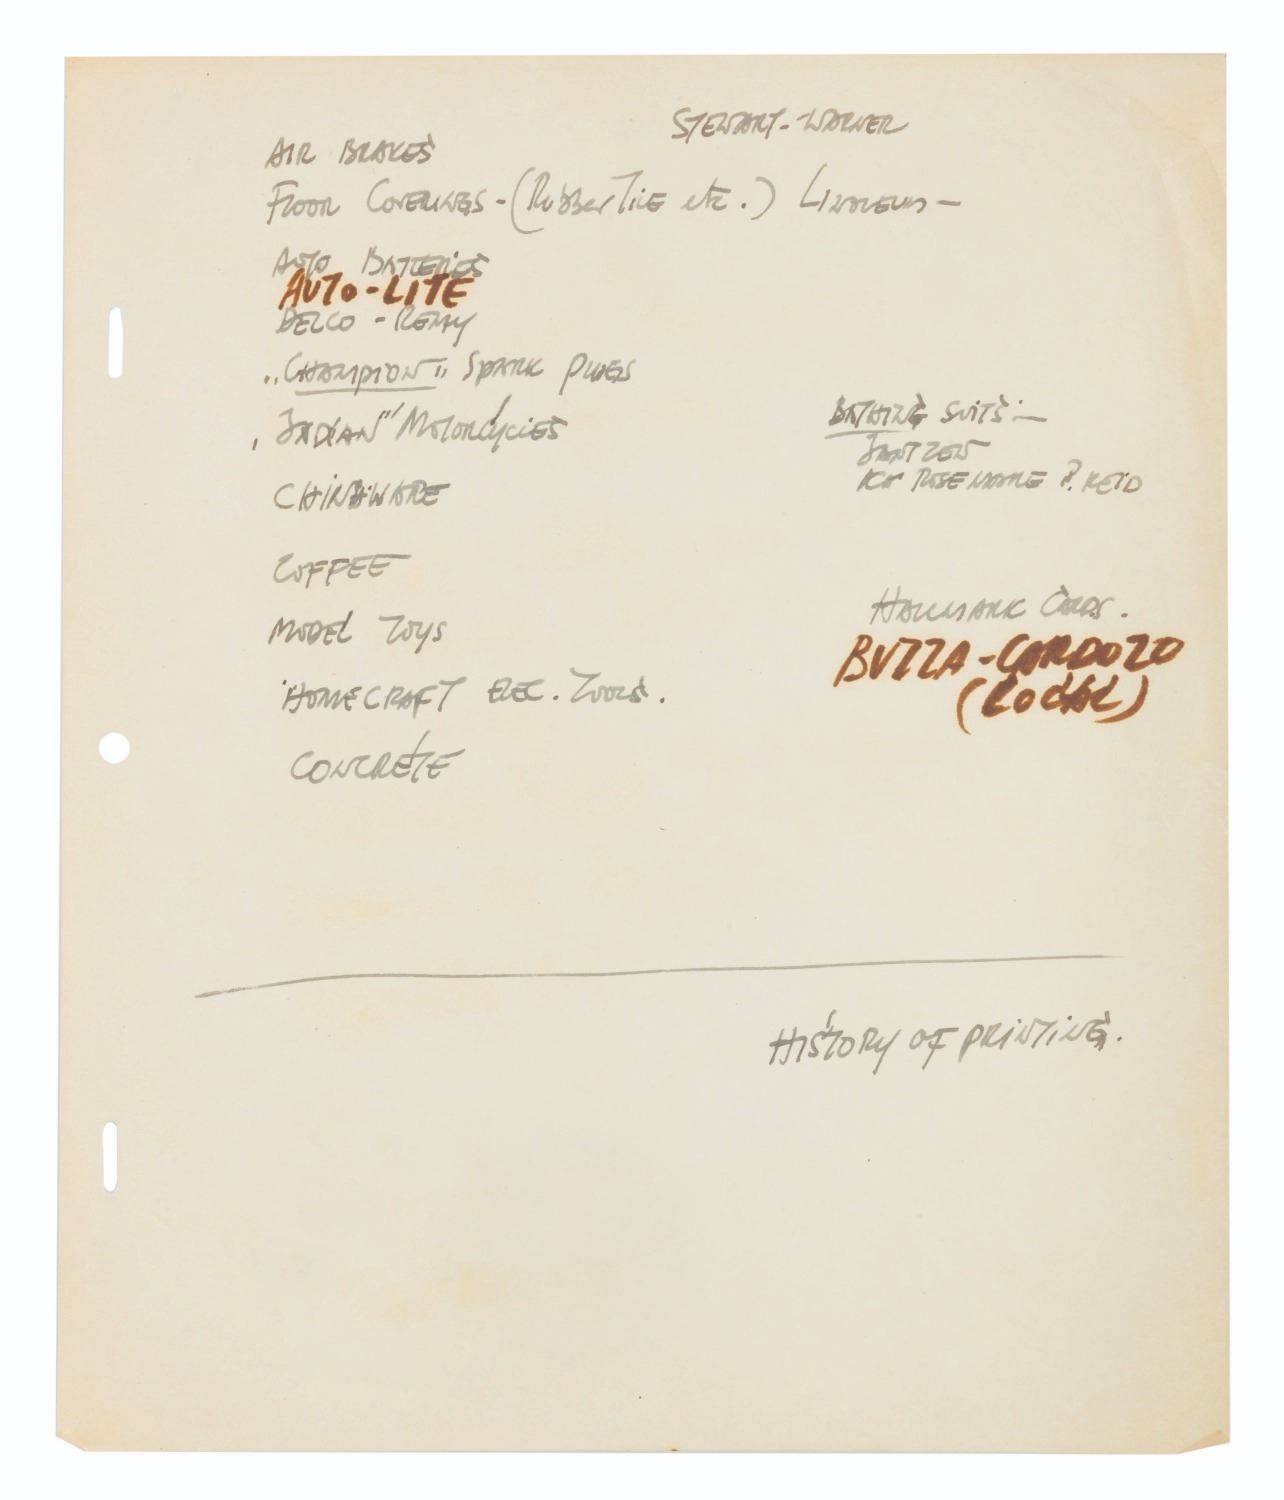 STEWART-WARNER
AIR BRAKES
FLOOR COVERINGS-(RUBBER TILE etc.) LINOLEUM—
AUTO BATTERIES
AUTO-LITE
DELCO-REMY
"CHAMPION" SPARK PLUGS
"INDIAN" MOTORCYCLES
BATHING SUITS:—
JANTZEN
ROSE MARIE ? REID
CHINAWARE
COFFEE
HALLMARK CARDS.
MODEL TOYS
BUZZA-CARDOZO
(LOCAL)
HOMECRAFT ELEC. TOOLS.
CONCRETE
HISTORY OF PRINTING.